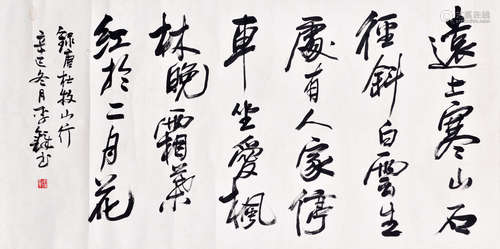 遠上寒山石
徑斜白雲生
處有人家停
車坐愛楓
林晚霜葉
紅於二月花
錄唐杜牧山行
辛巳冬月李鐸书